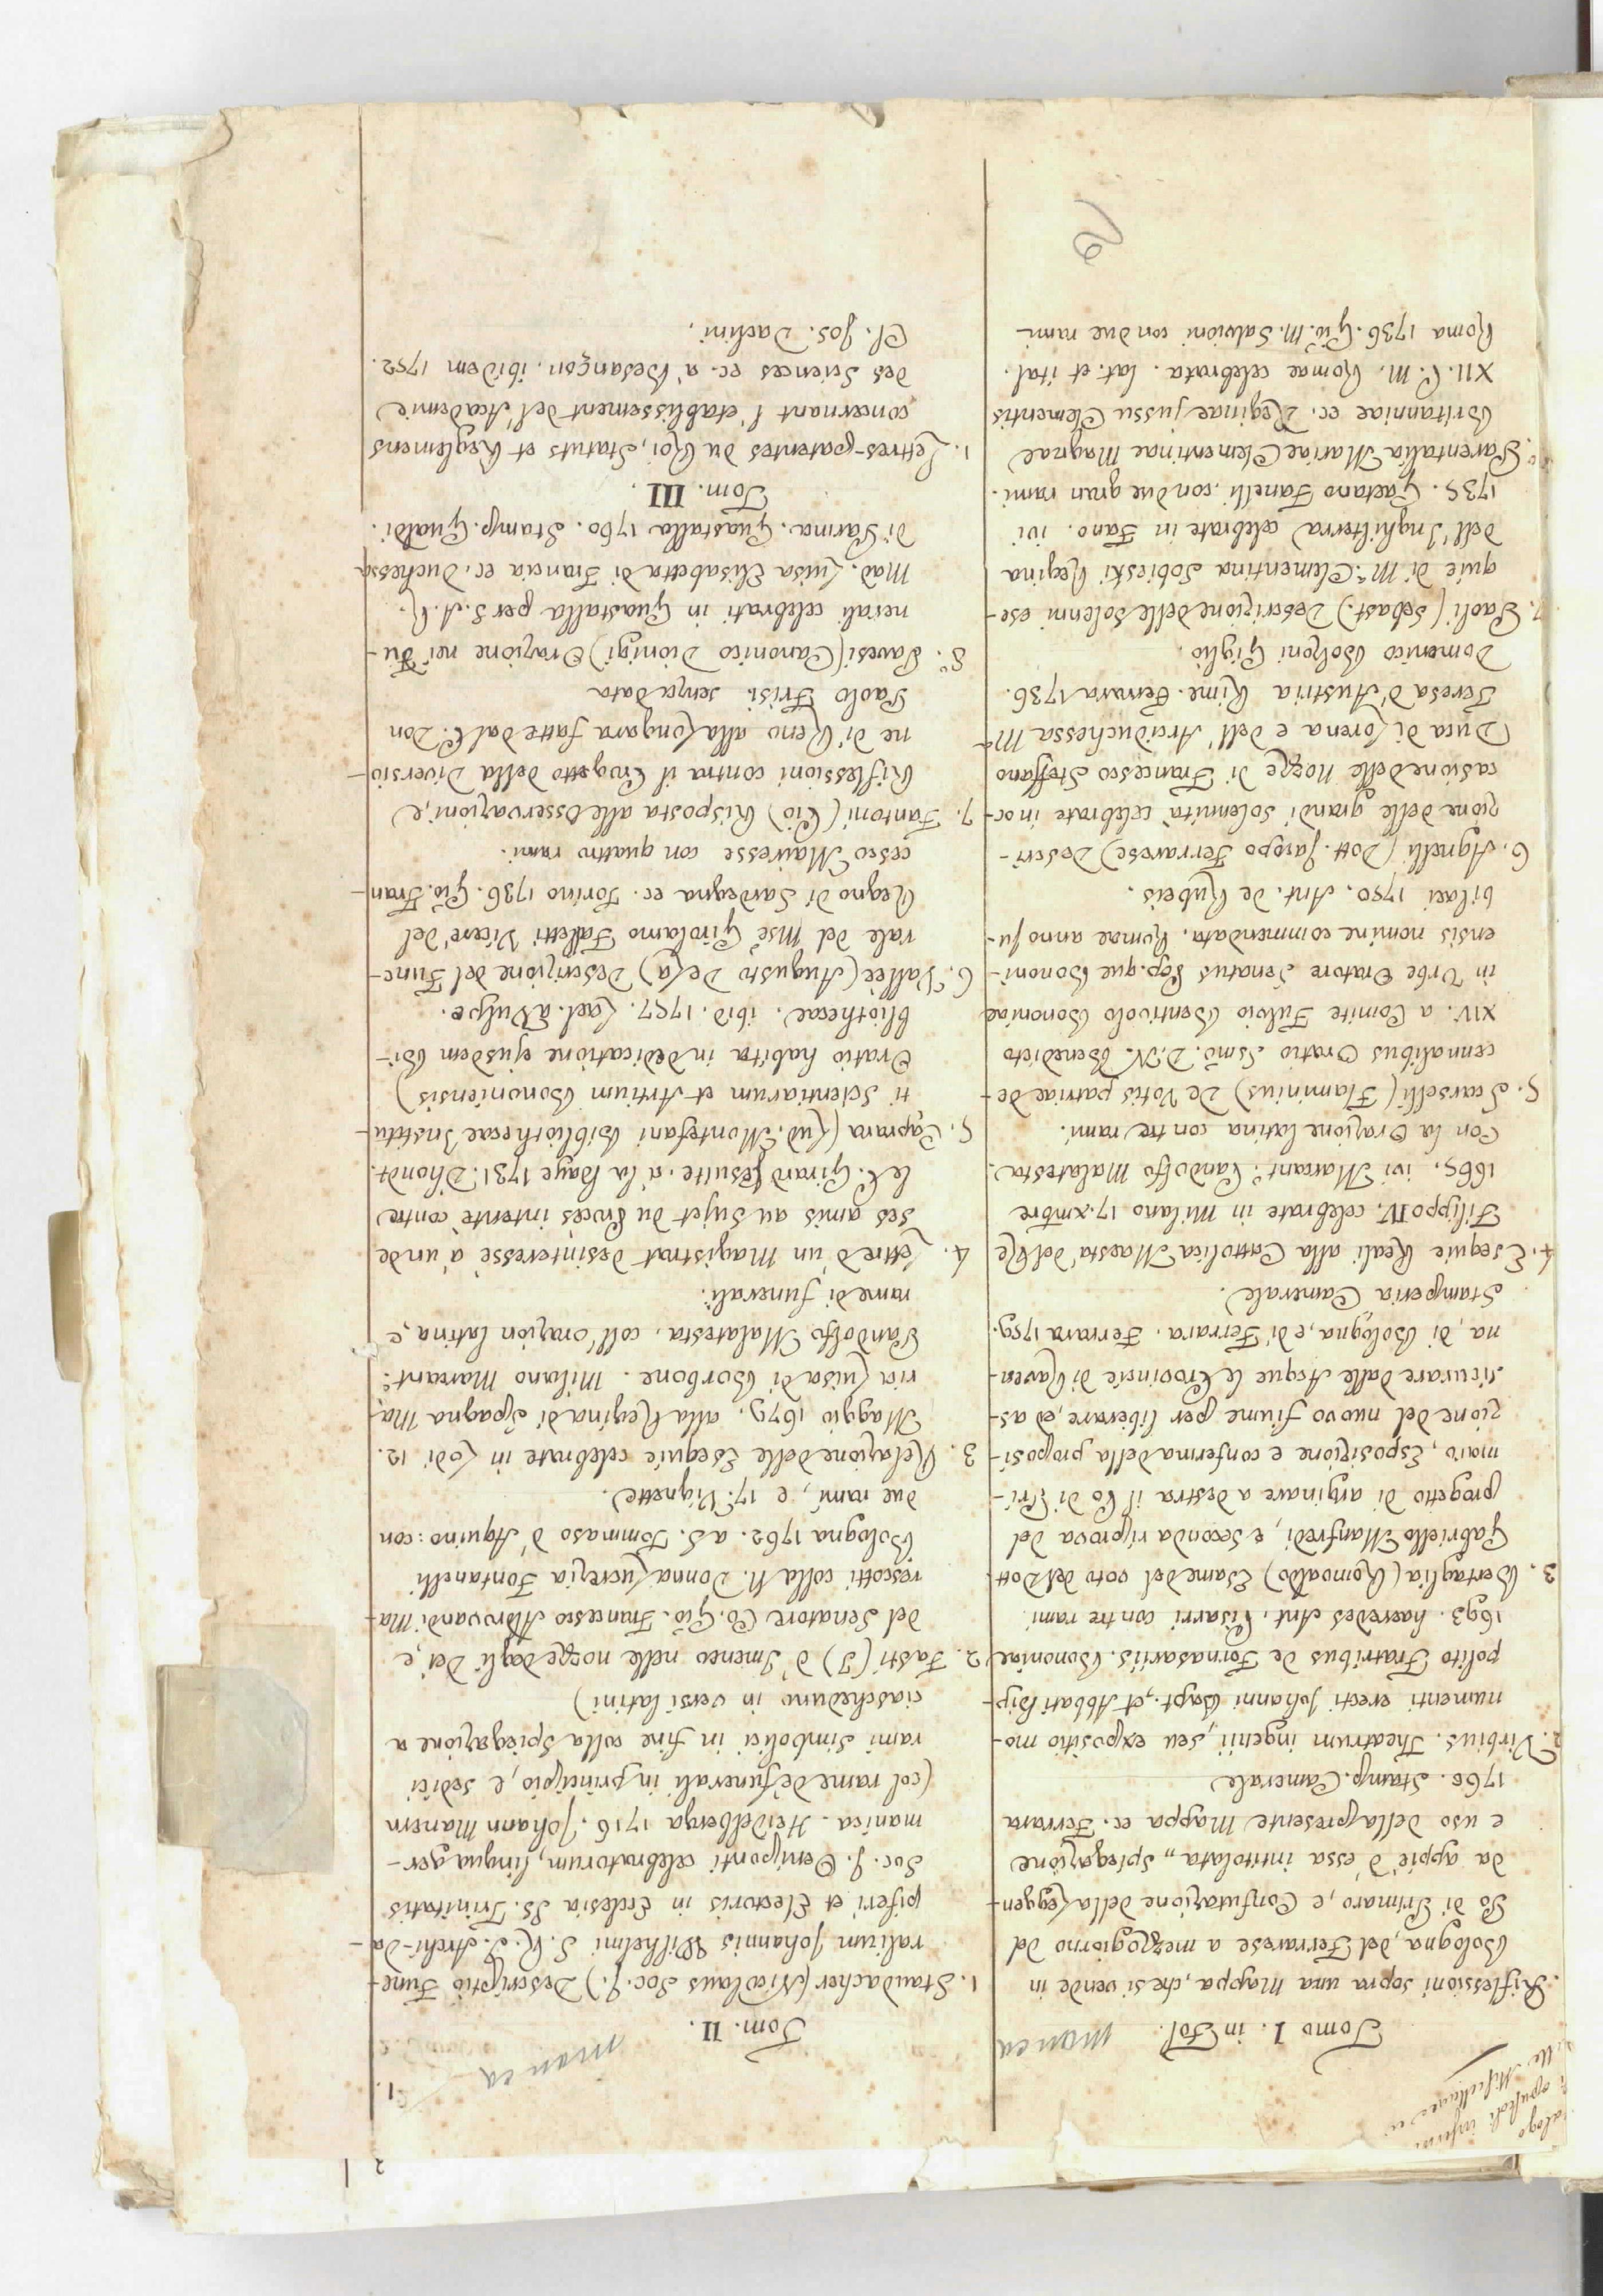 Tomo I. in Fol. manca
Riflessioni sopra una Mappa, che si vende in
Bologna, del Ferrarese a mezzogiorno del
Po di Primaro, e Confutazione della Leggen-
da appiè d'essa intitolata „ Spiegazione
e uso della presente Mappa ec. Ferrara
1760. Stamp. Camerale
2. Virbius. Theatrum ingenii, seu expositio mo-
numenti erecti Johanni Bapt., et Abbati Hip-
polito Fratribus de Fornasariis. Bononiae
1693. haeredes Ant. Pisarri con tre rami
3. Bertaglia (Romoaldo) Esame del voto del Dott.
Gabriello Manfredi, e seconda riprova del
progetto di arginare a destra il Po di Pri-
maro, Esposizione e conferma della proposi-
zione del nuovo fiume per liberare, ed as-
sicurare dalle Acque le Provincie di Raven-
na, di Bologna, e di Ferrara. Ferrara 1759.
Stamperia Camerale.
4. Esequie Reali alla Cattolica Maestà del Re
Filippo IV. celebrate in Milano 17. xmbre
1665. ivi Marcant.º Pandolfo Malatesta.
Con la Orazione latina con tre rami.
5. Scarselli (Flaminius) De Votis patriae de-
cennalibus Oratio Ssmo. D. N. Benedicto
XIV. a Comite Fulvio Bentivolo Bononiae
in Urbe Oratore Senatus Pop.que Bononi-
ensis nomine commendata. Romae anno ju-
bilaei 1750. Ant. de Rubeis.
6. Agnelli (Dott. Jacopo Ferrarese) Descri-
zione delle grandi solennità celebrate in oc-
casione delle Nozze di Francesco Steffano
Duca di Lorena e dell' Arciduchessa Mª
Teresa d'Austria Rime. Ferrara 1736.
Domenico Bolzoni Giglio.
7. Paoli (Sebast.) Descrizione delle solenni ese-
quie di Mª Clementina Sobieski Regina
dell' Inghilterra celebrate in Fano. ivi
1735. Gaetano Fanelli. con due gran rami.
Parentalia Mariae Clementinae Magnae
Brittanniae ec. Reginae jussu Clementis
XII. P. M. Romae celebrata. lat. et ital.
Roma 1736. Gio. M. Salvioni con due rami
2
1.
Tom. II. manca
1. Staudacher (Nicolaus Soc. J.) Descriptio Fune-
ralium Johannis Wilhelmi S. R. I. Archi-Da-
piferi et Electoris in Ecclesia SS. Trinitatis
Soc. J. Oeniponti celebratorum, lingua ger-
manica. Heidelberga 1716. Johann Mayern
(col rame de' funerali in principio, e sedici
rami Simbolici in fine colla spiegazione a
ciascheduno in versi latini)
2. Fasti (I) d' Imeneo nelle nozze dagli Dei, e
del Senatore Co. Gio. Francesco Aldrovandi Ma-
rescotti colla N. Donna Lucrezia Fontanelli
Bologna 1762. a S. Tommaso d' Aquino: con
due rami, e 17. Vignette.
3. Relazione delle Esequie celebrate in Lodi 12.
Maggio 1679. alla Regina di Spagna Ma-
ria Luisa di Borbone. Milano Marcant.º
Pandolfo Malatesta. coll' orazion latina, e
rame di funerali.
4. Lettre d'un Magistrat desinteressè a' un de
ses amis au sujet du Procès intentè contre
le P. Girard Jesuite. a la Haye 1731. Dhondt.
5. Caprara (Lud. Montefani Bibliothecae Institu-
ti Scientiarum et Artium Bononiensis)
Oratio habita in dedicatione ejusdem Bi-
bliothecae. ibid. 1757. Lael. a Vulpe.
6. Vallée (Augusto De La) Descrizione del Fune-
rale del Mse. Girolamo Faletti Vicerè del
Regno di Sardegna ec. Torino 1736. Gio. Fran-
cesco Mairesse con quattro rami.
7. Fantoni (Pio) Risposta alle Osservazioni, e
Riflessioni contra il Progetto della Diversio-
ne di Reno alla Longara fatte dal P. Don
Paolo Frisi. senza data
8. Pavesi (Canonico Dionigi) Orazione nei Fu-
nerali celebrati in Guastalla per S. A. R.
Mad. Luisa Elisabetta di Francia ec. Duchessa
di Parma. Guastalla 1760. Stamp. Gualdi.
Tom. III.
1. Lettres-patentes du Roi, Statuts et Reglemens
concernant l' etablissement del' Academie
des Sciences ec. a' Besançon. ibidem 1752.
Cl. Jos. Daclini.